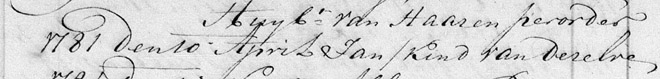 Huyb.n van Haaren perorder
1781 den 10 April Jan / Kind van dezelve